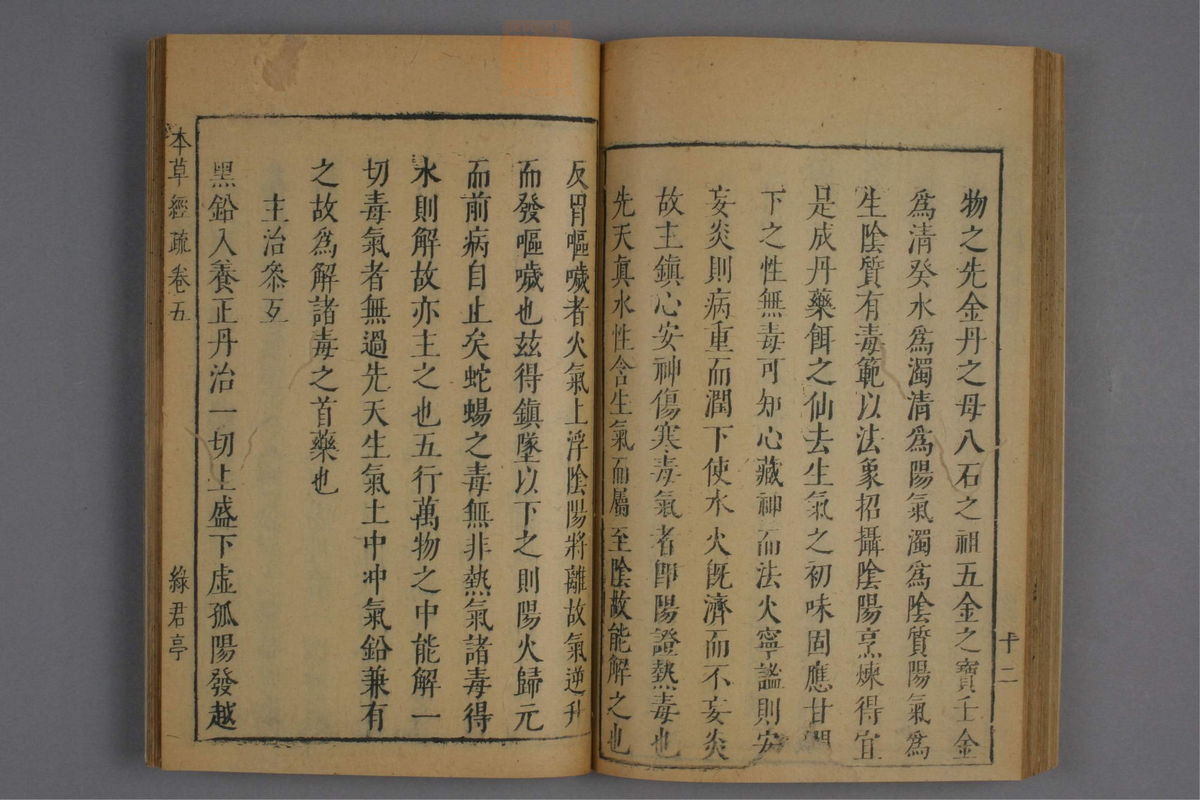 物之先金丹之母八石之祖五金之寶壬金
爲清癸水爲濁清爲陽氣濁爲陰質陽氣爲
生陰質有毒範以法象招攝陰陽烹煉得宜
是成丹藥餌之仙去生氣之初味固應甘潤
下之性無毒可知心藏神而法火寧謐則安
妄炎則病重而潤下使水火旣濟而不妄炎
故主鎮心安神傷寒毒氣者卽陽證熱毒也
先天眞水性含生氣而屬至陰故能解之也
十二
反胃嘔噦者火氣上浮陰陽將離故氣逆升
而發嘔噦也茲得鎮墜以下之則陽火歸元
而前病自止矣蛇蝪之毒無非熱氣諸毒得
水則解故亦主之也五行萬物之中能解一
切毒氣者無過先天生氣土中冲氣鉛兼有
之故爲解諸毒之首藥也
主治叅互
黑鉛入養正丹治一切上盛下虛孤陽發越
本草經疏卷五
綠君亭